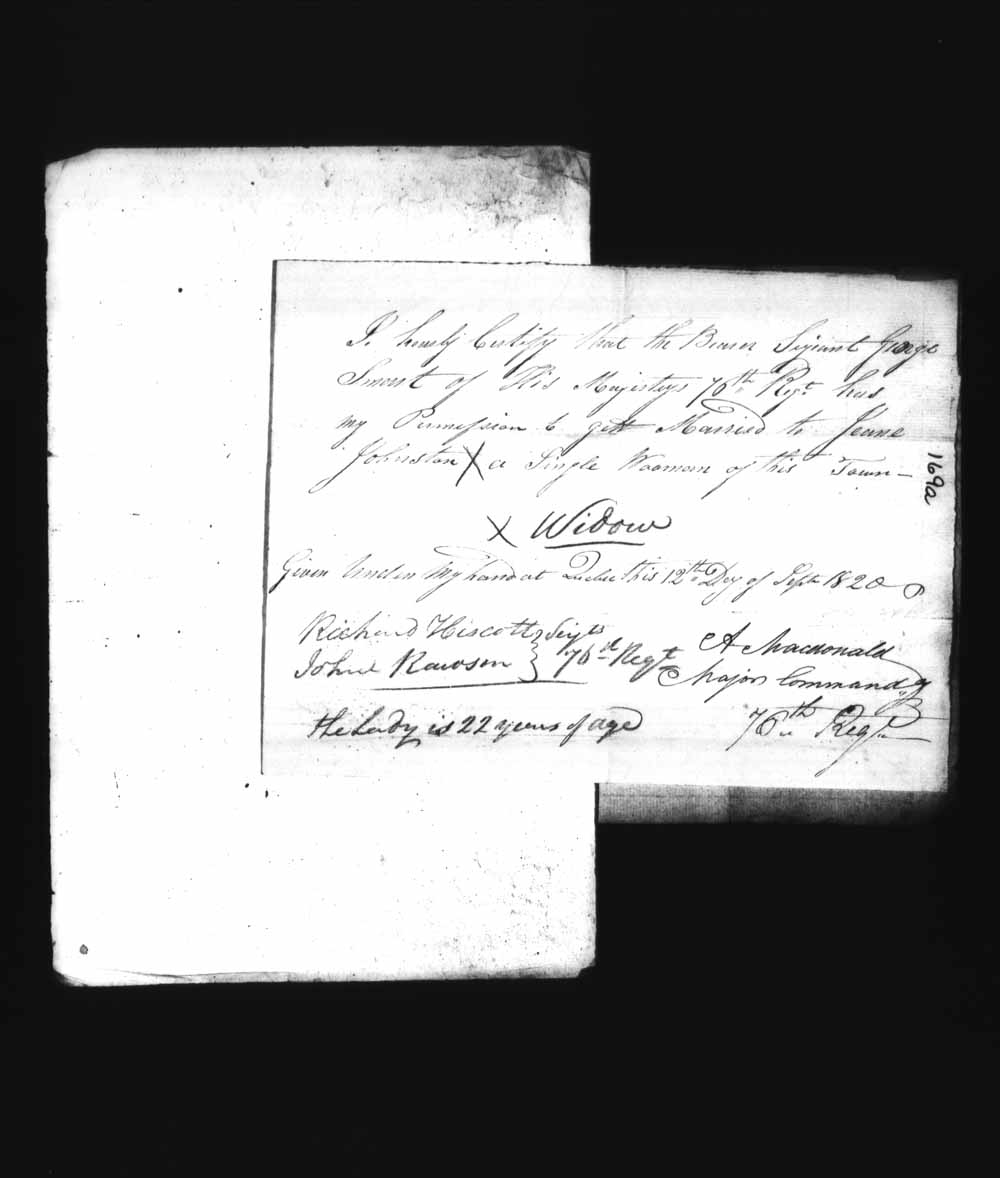 I hereby Certify that the Bearer Serjeant George
Smart of His Majestys 76th Regt has
my Permission to gett Married to Jeane
Johnston X a Single Wooman of this Town
X Widow
Given Under My hand at Quebec this 12th Day of Septr 1820
Richard Hiscott } Serjts
John Rawson } 76th Regt
A Macdonald
Major Commandg
76th Regt
the Lady is 22 years of age
169a